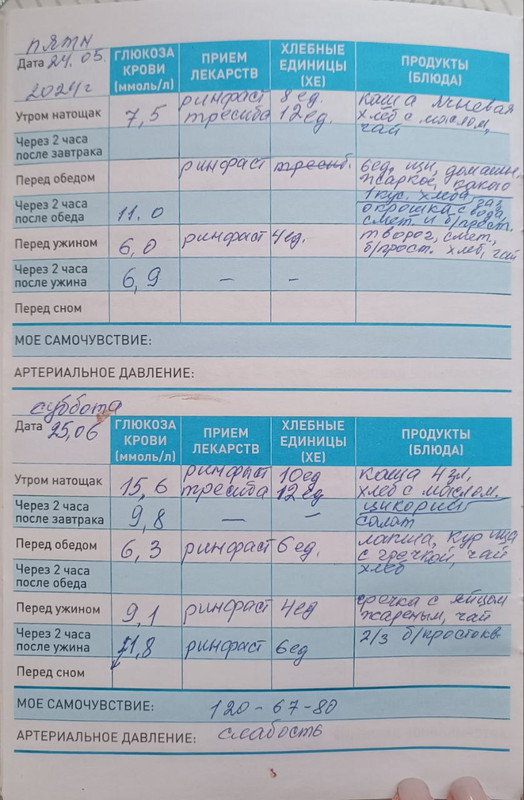 пятн
Дата 24.05.
2024г
ГЛЮКОЗА КРОВИ (ммоль/л)
ПРИЕМ ЛЕКАРСТВ
ХЛЕБНЫЕ ЕДИНИЦЫ (ХЕ)
ПРОДУКТЫ (БЛЮДА)
Утром натощак 7,5 ринфаст 8ед. каша
тресиба 12ед. хлеб с маслом,
чай
Через 2 часа после завтрака
Перед обедом ринфаст 6ед, щи, домашн,
жаркое, какао
1 кус. хлеба
Через 2 часа после обеда 11.0 окрошка с вода,
смет. и б/прост.
Перед ужином 6,0 ринфаст 4ед. творог, смет,
б/прост. хлеб, чай
Через 2 часа после ужина 6,9 – –
Перед сном
МОЕ САМОЧУВСТВИЕ:
АРТЕРИАЛЬНОЕ ДАВЛЕНИЕ:
суббота
Дата 25,06
ГЛЮКОЗА КРОВИ (ммоль/л)
ПРИЕМ ЛЕКАРСТВ
ХЛЕБНЫЕ ЕДИНИЦЫ (ХЕ)
ПРОДУКТЫ (БЛЮДА)
Утром натощак 15,6 ринфаст 10ед каша 4 зл,
тресиба 12ед хлеб с маслом.
цикорий
Через 2 часа после завтрака 9,8 – – салат
Перед обедом 6,3 ринфаст 6ед. лапша, курица
с гречкой, чай
хлеб
Через 2 часа после обеда
Перед ужином 9,1 ринфаст 4ед гречка с яйцом
жареным, чай
Через 2 часа после ужина 11,8 ринфаст 6ед 2/3 б/простокв
Перед сном
МОЕ САМОЧУВСТВИЕ: 120-67-80
АРТЕРИАЛЬНОЕ ДАВЛЕНИЕ: слабость